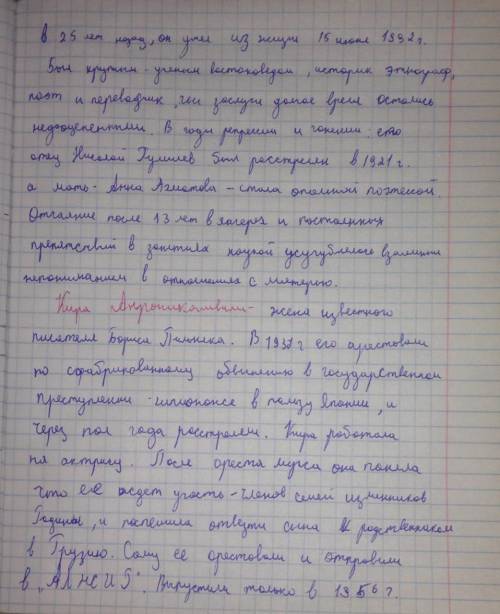 в 25 лет назад, он умер из жизни 15 июня 1992 г.
Был крупным - ученым востоковедом, историк этнограф,
поэт и переводчик, чьи заслуги долгое время остались
недооцененными. В годы репрессии и гонении: его
отец Николай Гумилев был расстрелян в 1921 г.
а мать - Анна Ахматова - стала опальной поэтессой.
Отчаяние после 13 лет в лагерях и постоянных
препятствий в занятиях наукой усугублялось взаимным
непониманием в отношениях с матерью.
Кира Андроникашвили - жена известного
писателя Бориса Пильняка. В 1937 г его арестовали
по сфабрикованному обвинению в государственном
преступлении - шпионаже в пользу Японии, и
через пол года расстреляли. Кира работала
на актрису. После ареста мужа она поняла
что её ждет участь - членов семей изменников
Родины, и поспешила отвезти сына к родственникам
в Грузию. Саму ее арестовали и отправили
в "АЛЖИР". Выпустили только в 1956 г.